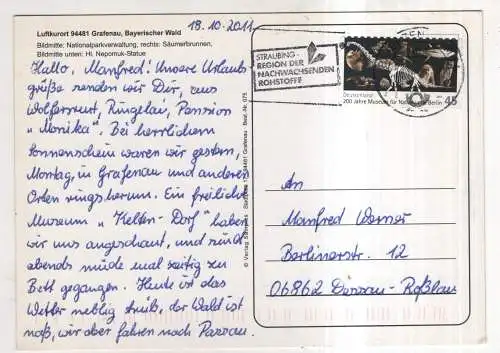 Luftkurort 94481 Grafenau, Bayerischer Wald
Bildmitte: Nationalparkverwaltung, rechts: Säumerbrunnen,
Bildmitte unten: Hl. Nepomuk-Statue
18.10.2011
Hallo, Manfred! Unsere Urlaubs-
grüße senden wir Dir, aus
Wolfersreut, Ringelai, Pension
"Monika". Bei herrlichem
Sonnenschein waren wir gestern,
Montag, in Grafenau und anderen
Orten ringsherum. Ein freilich
Museum "Kelten-Dorf" haben
wir uns angeschaut, und sind
abends müde mal zeitig zu
Bett gegangen. Heute ist das
Wetter neblig trüb, der Wald ist
naß, wir aber fahren nach Passau.
© Verlag
94481 Grafenau - Best. Nr. 075
STRAUBING-
REGION DER
NACHWACHSENDEN
ROHSTOFFE
Deutschland
200 Jahre Museum für Naturkunde Berlin
45
An
Manfred Werner
Berlinerstr. 12
06862 Dessau-Roßlau